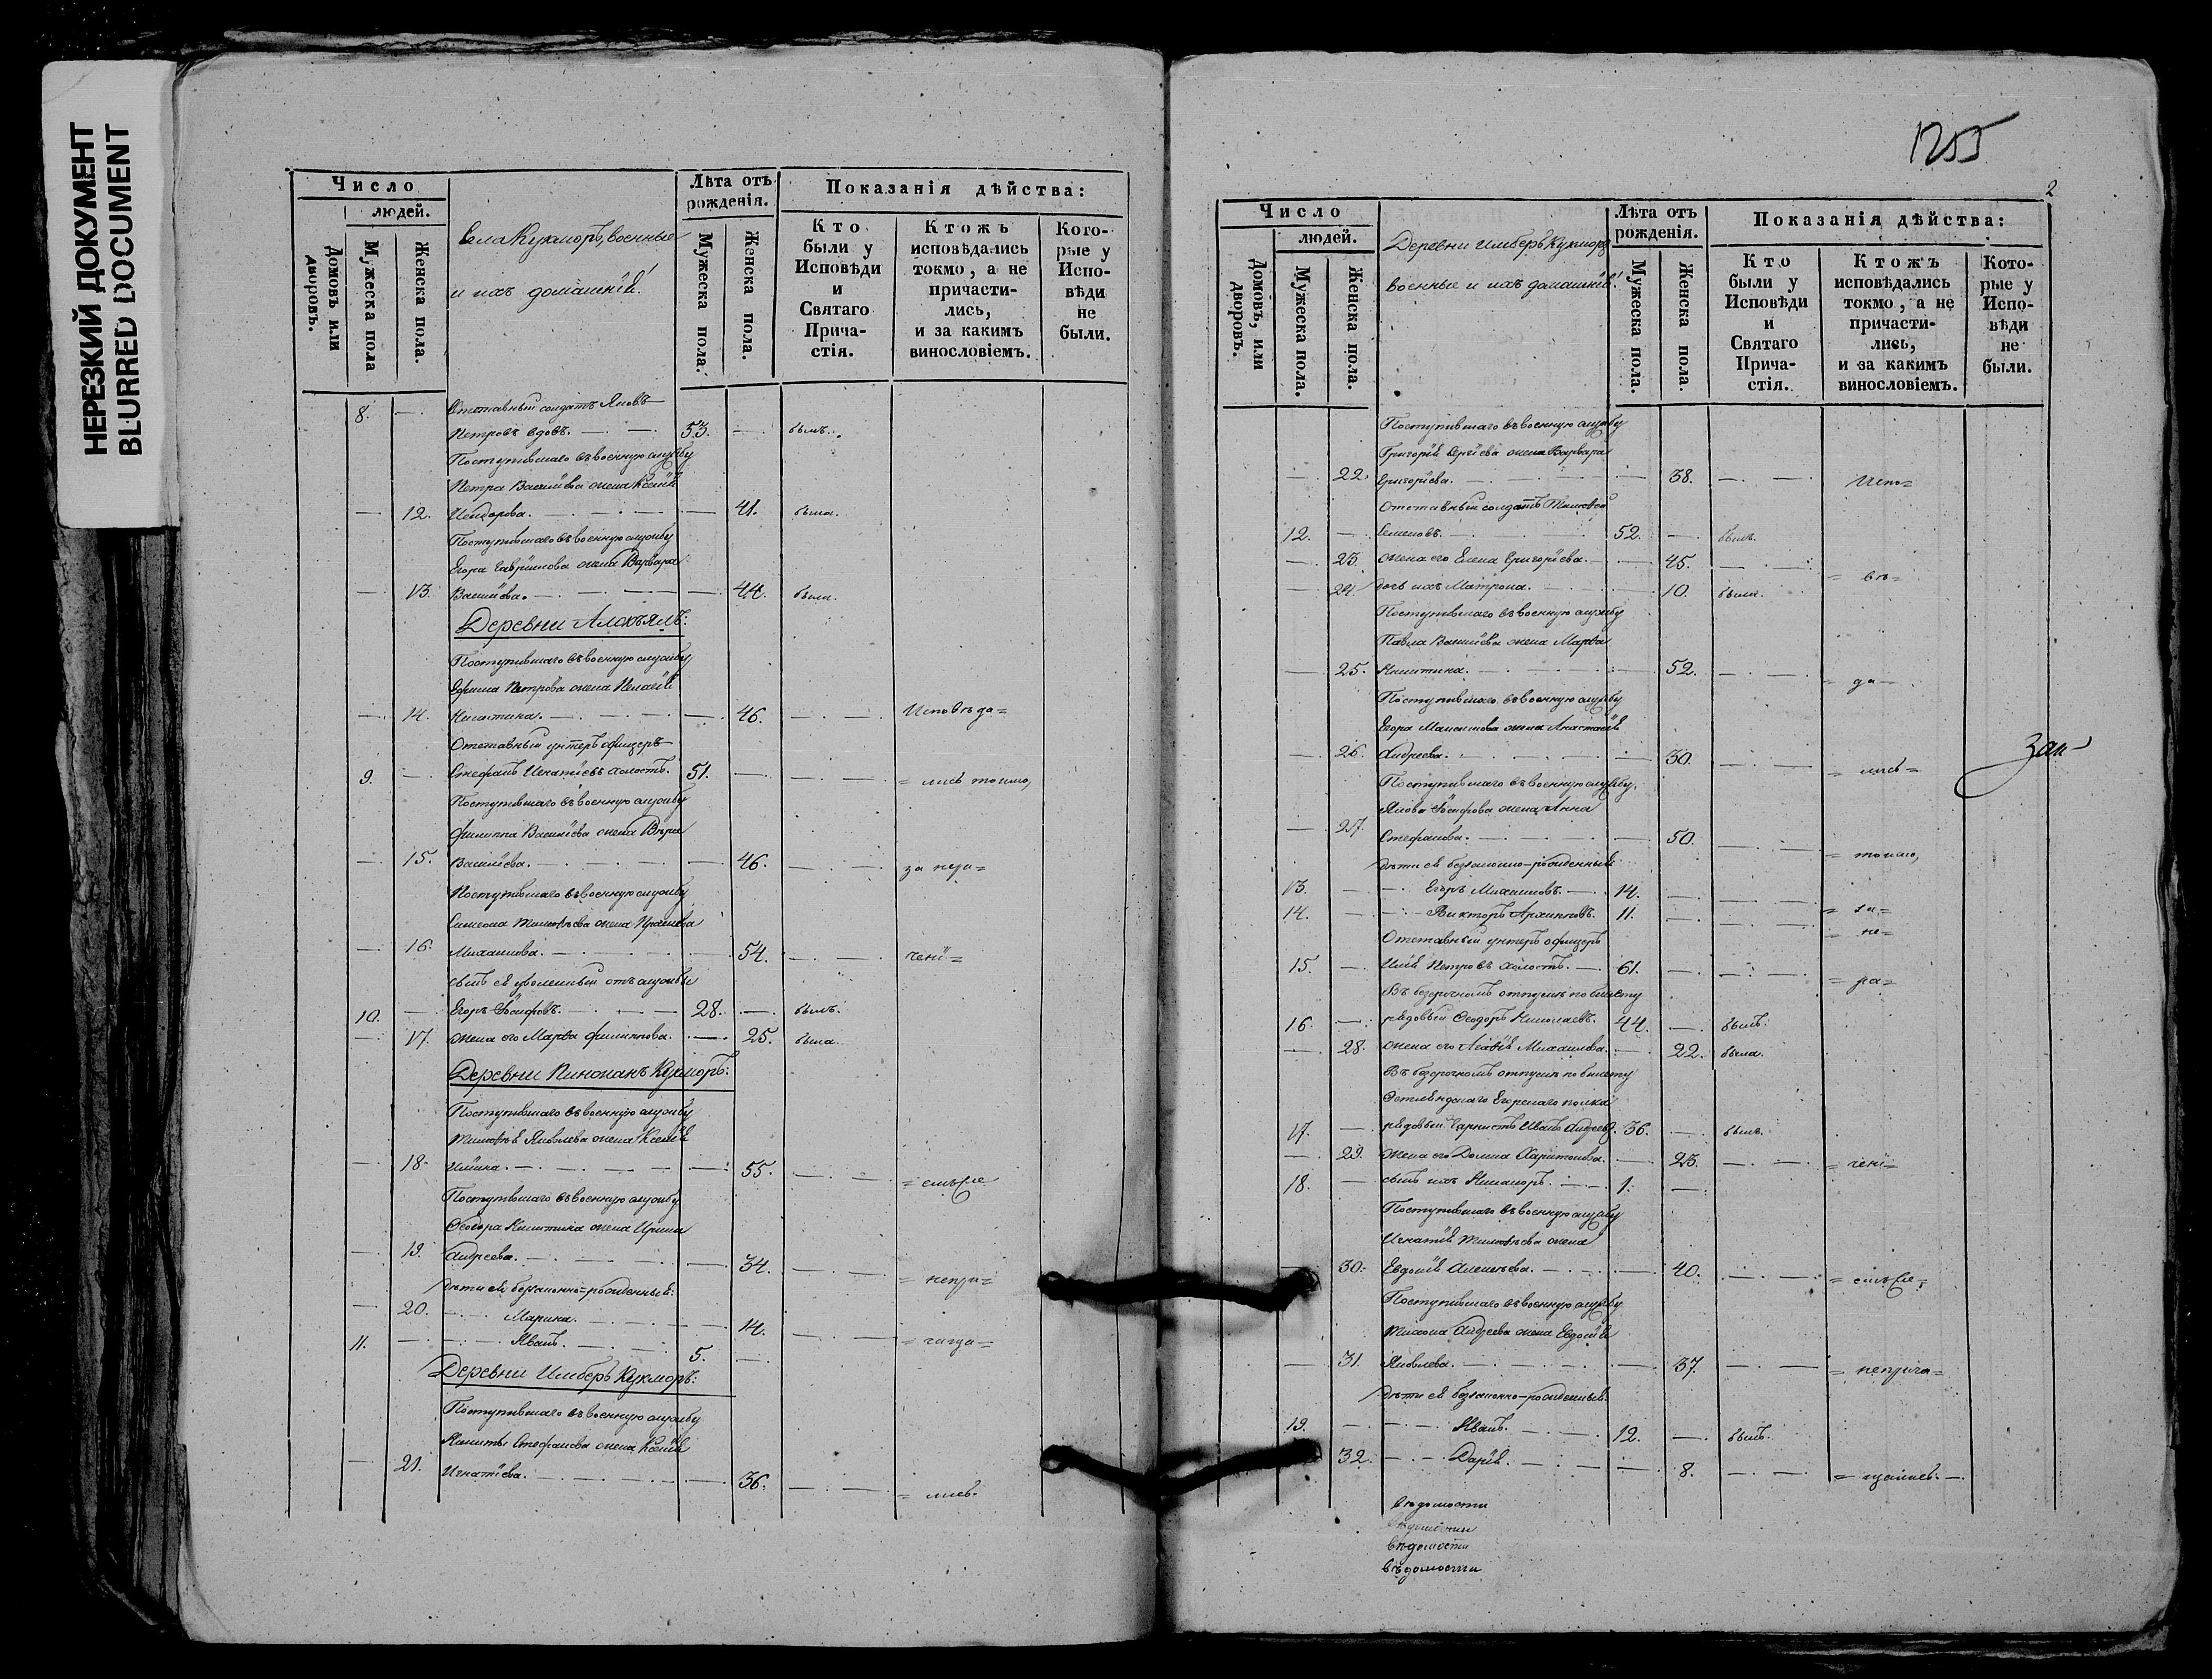 НЕРЕЗКИЙ ДОКУМЕНТ
BLURRED DOCUMENT
Число
людей.
Домовъ или дворовъ.
Мужеска пола
Женска пола.
Села Кукморъ, военные
и ихъ домашнiи.
Лѣта отъ рожденiя.
Мужеска пола.
Женска пола.
Показанiя дѣйства:
Кто были у Исповѣди и Святаго Прича-стiя.
Ктожъ исповѣдались токмо, а не причасти-лись, и за какимъ винословiемъ.
Кото-рые у Испо-вѣди не были.
8. — Отставный солдатъ Яковъ
Петровъ вдовъ. — 53. — былъ.
Поступившаго въ военную службу
Петра Васильева жена Ксенiя
— 12. Исидорова. — 41. была.
Поступившаго въ военную службу
Егора Гаврилова жена Варвара
— 13. Васильева. — 44. была.
Деревни Алокъялъ:
Поступившаго въ военную службу
Ефима Петрова жена Пелагiя
— 14. Никитина. — 46. — Исповѣда=
Отставный унтеръ офицеръ
9. — Стефанъ Игнатьевъ холостъ. 51. — = лись токмо,
Поступившаго въ военную службу
Филиппа Васильева жена Вѣра
— 15. Васильева. — 46. — за нера=
Поступившаго въ военную службу
Симеона Тимоѳеева жена
— 16. Михаилова. — 54. — ченi=
сынъ ея уволенный отъ службы
10. — Егоръ Iосифовъ. — 28. — былъ.
— 17. жена его Марѳа Филиппова. — 25. была.
Деревни Пинжанъ Кукморъ:
Поступившаго въ военную службу
Тимоѳея Яковлева жена Ксенiя
— 18. Ильина. — 55. —
Поступившаго въ военную службу
Ѳеодора Никитина жена Ирина
— 19. Андреева. — 34. — = непри=
дѣти ея беззаконно-рожденныя:
— 20. — Марина. — 14. —
11. — Иванъ. — 5. —
Деревни Имберь Кукморъ:
Поступившаго въ военную службу
Никиты Стефанова жена Ксенiя
— 21. Игнатьева. — 36. — = лись.
1255
2
Число
людей.
Домовъ, или дворовъ.
Мужеска пола.
Женска пола.
Деревни Имберь Кукморъ
военные и ихъ домашнiи.
Лѣта отъ рожденiя.
Мужеска пола.
Женска пола.
Показанiя дѣйства:
Кто были у Исповѣди и Святаго Прича-стiя.
Ктожъ исповѣдались токмо, а не причасти-лись, и за какимъ винословiемъ.
Кото-рые у Испо-вѣди не были.
Поступившаго въ военную службу
Григорiя Сергiева жена Варвара
— 22. Григорьева. — 38. — Испо=
Отставный солдатъ Тимоѳей
12. — Семеновъ. — 52. — былъ.
— 23. жена его Елена Григорьева. — 45. — = вѣ=
— 24. дочь ихъ Матрона. — 10. была.
Поступившаго въ военную службу
Павла Васильева жена Марѳа
— 25. Никитина. — 52. — = да=
Поступившаго въ военную службу
Егора Максимова жена Анастасiя
— 26. Андреева. — 30. — = лись=
Зап
Поступившаго въ военную службу
Якова Iосифова жена Анна
— 27. Стефанова. — 50. — = токмо,
дѣти ея беззаконно-рожденныя
13. — Егоръ Михаиловъ. — 14. —
14. — Викторъ Архиповъ. 11. — = за=
= не=
Отставный унтеръ офицеръ
15. — Илiя Петровъ холостъ. — 61. — = ра=
Въ безсрочномъ отпускѣ по билету
16. — рядовый Ѳеодоръ Николаевъ. 44. — былъ.
— 28. жена его Агаѳiя Михаилова. — 22. была.
Въ безсрочномъ отпускѣ по билету
Эстляндскаго Егерскаго полка
17. — рядовый Иванъ Андреевъ. 36. — былъ.
— 29. жена его Домна Харитонова. — 23. — = ченi=
18. — сынъ ихъ Никаноръ. — 1. —
Поступившаго въ военную службу
Игнатiя Тимоѳеева жена
— 30. Евдокiя Алексѣева. — 40. —
Поступившаго въ военную службу
Тихона Андреева жена Евдокiя
— 31. Яковлева. — 37. — = неприча=
дѣти ея беззаконно-рожденныя
19. — Иванъ. — 12. — былъ.
32. — Дарiя. — 8. — = щались. —
вѣдомости
вѣдомости
вѣдомости
вѣдомости